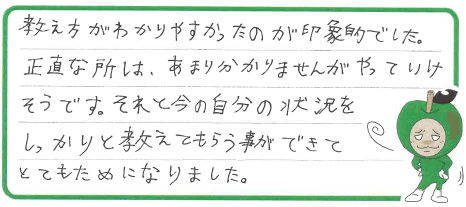 教え方がわかりやすかったのが印象的でした。
正直な所は、あまり分かりませんがやっていけ
そうです。それと今の自分の状況を
しっかりと教えてもらう事ができて
とてもためになりました。